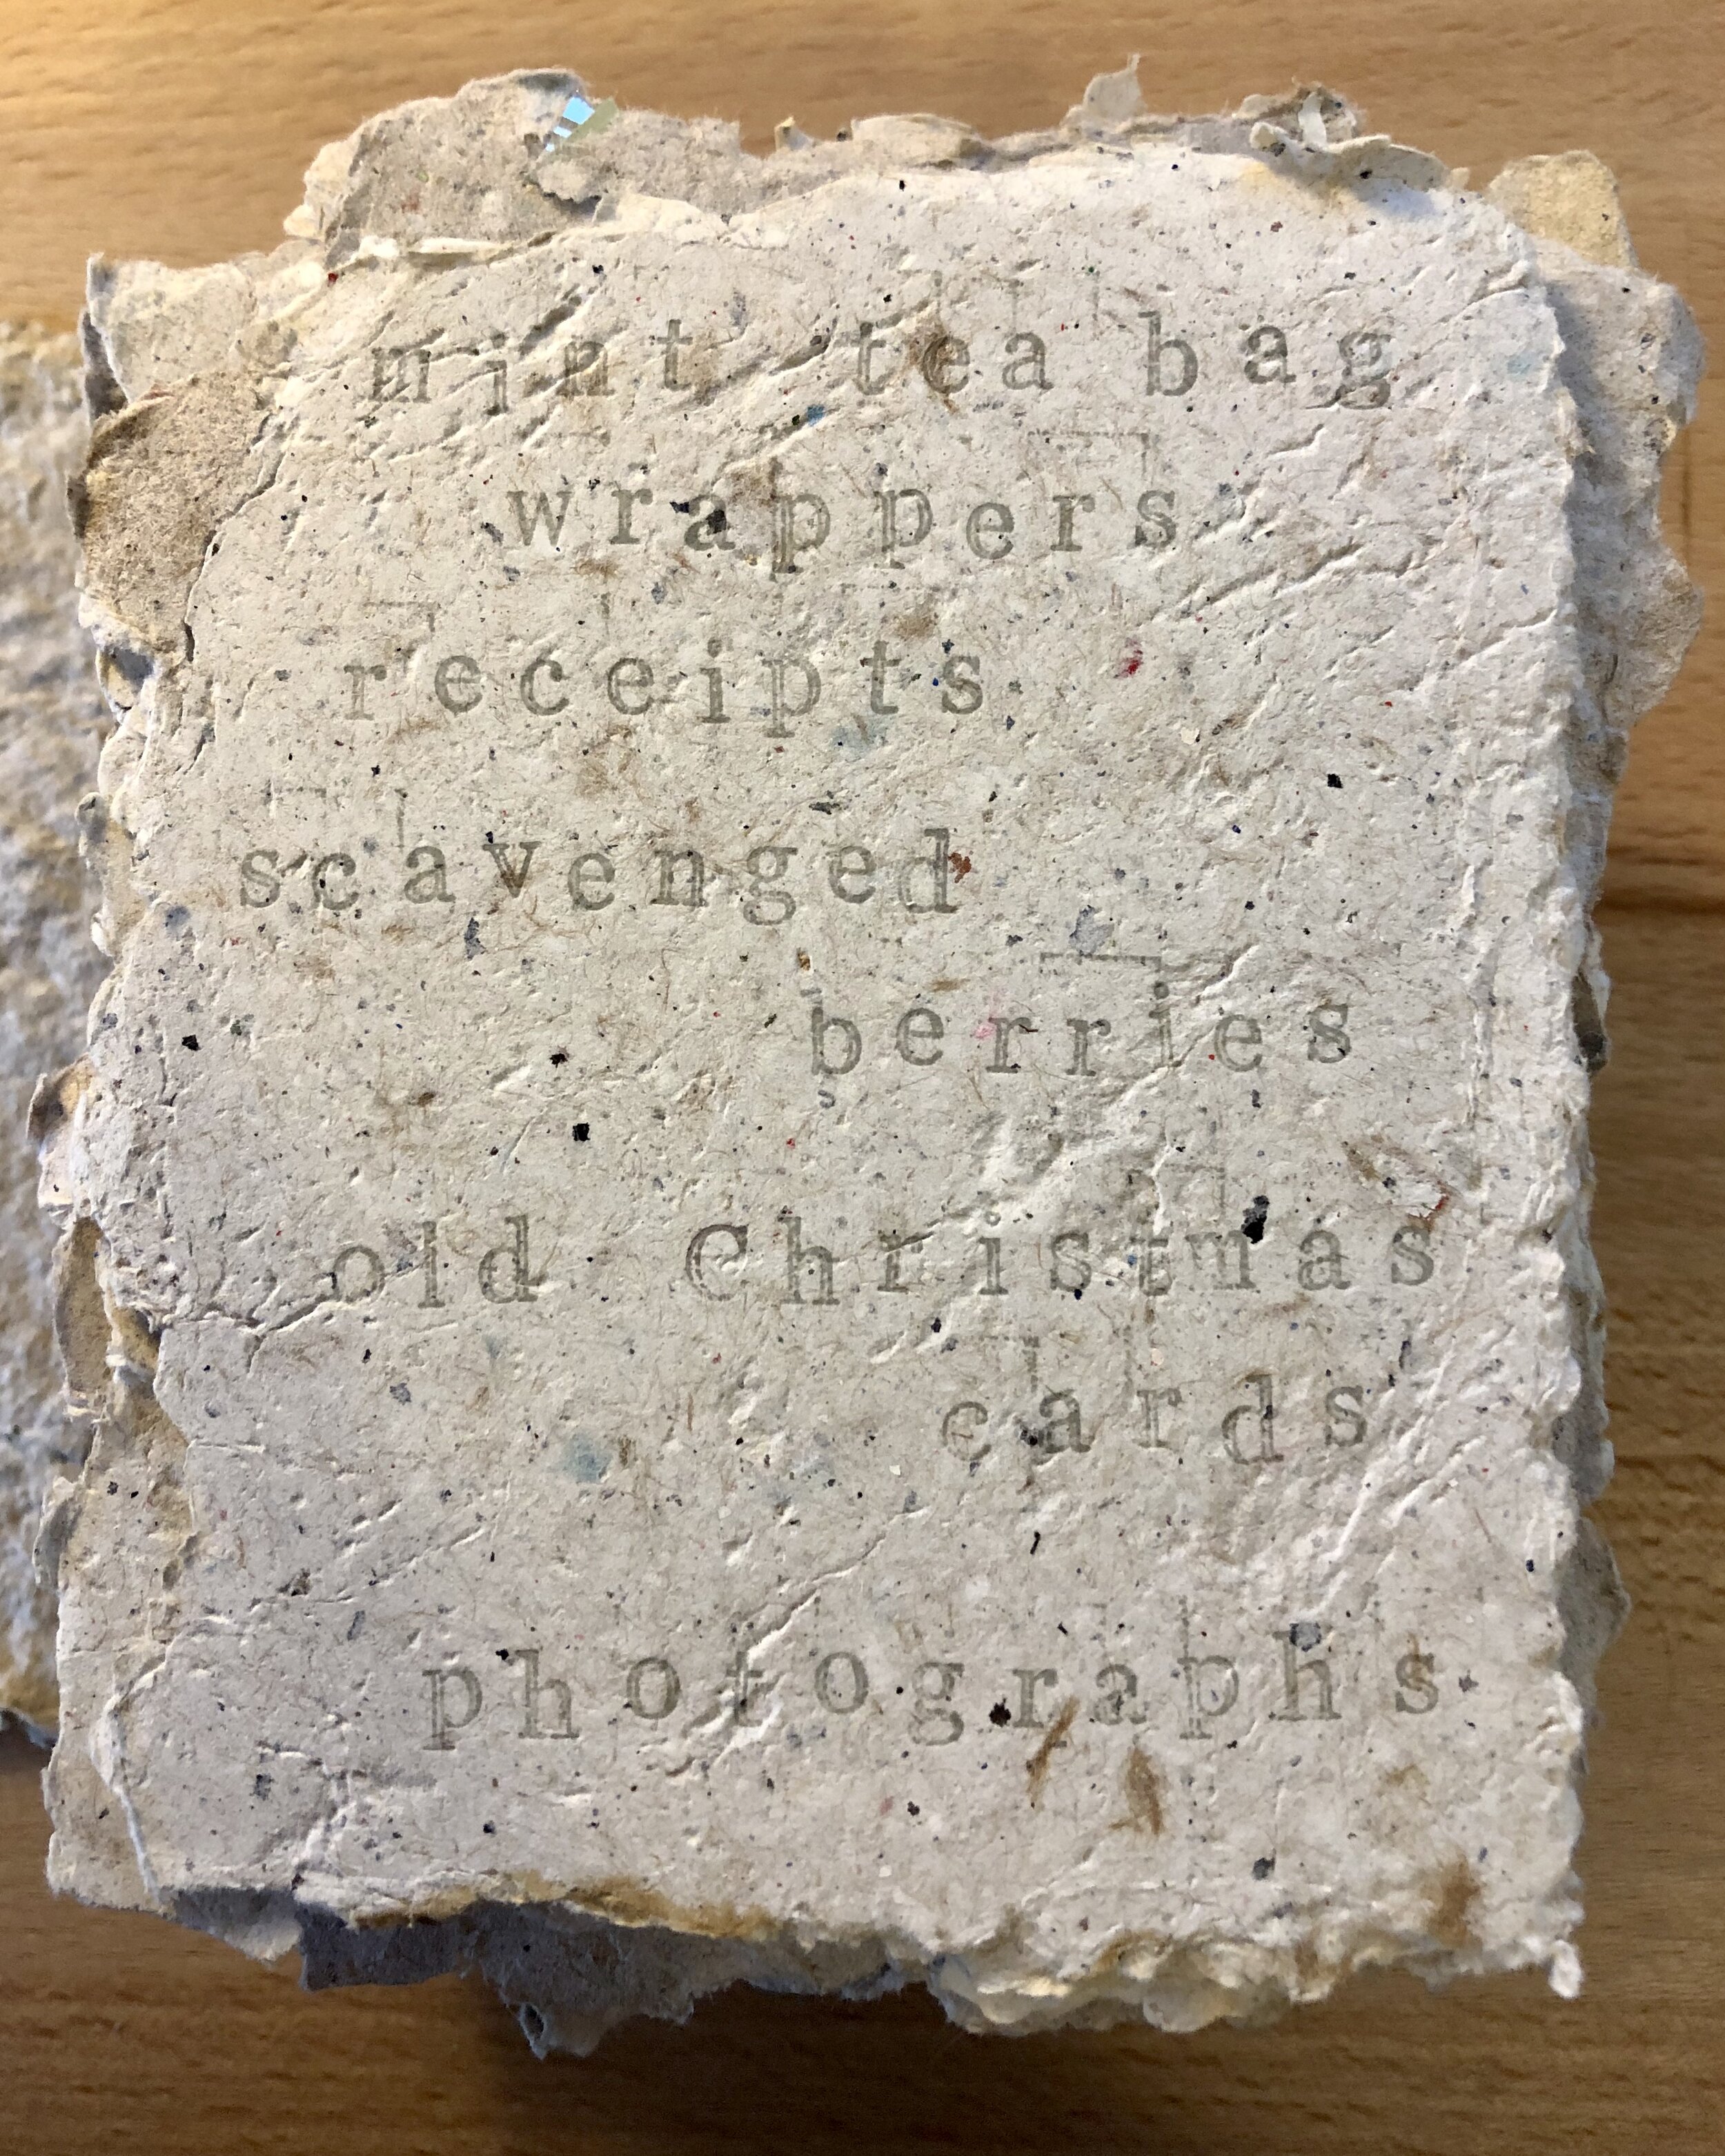 mint tea bag
wrappers
receipts
scavenged
berries
old Christmas
cards
photographs